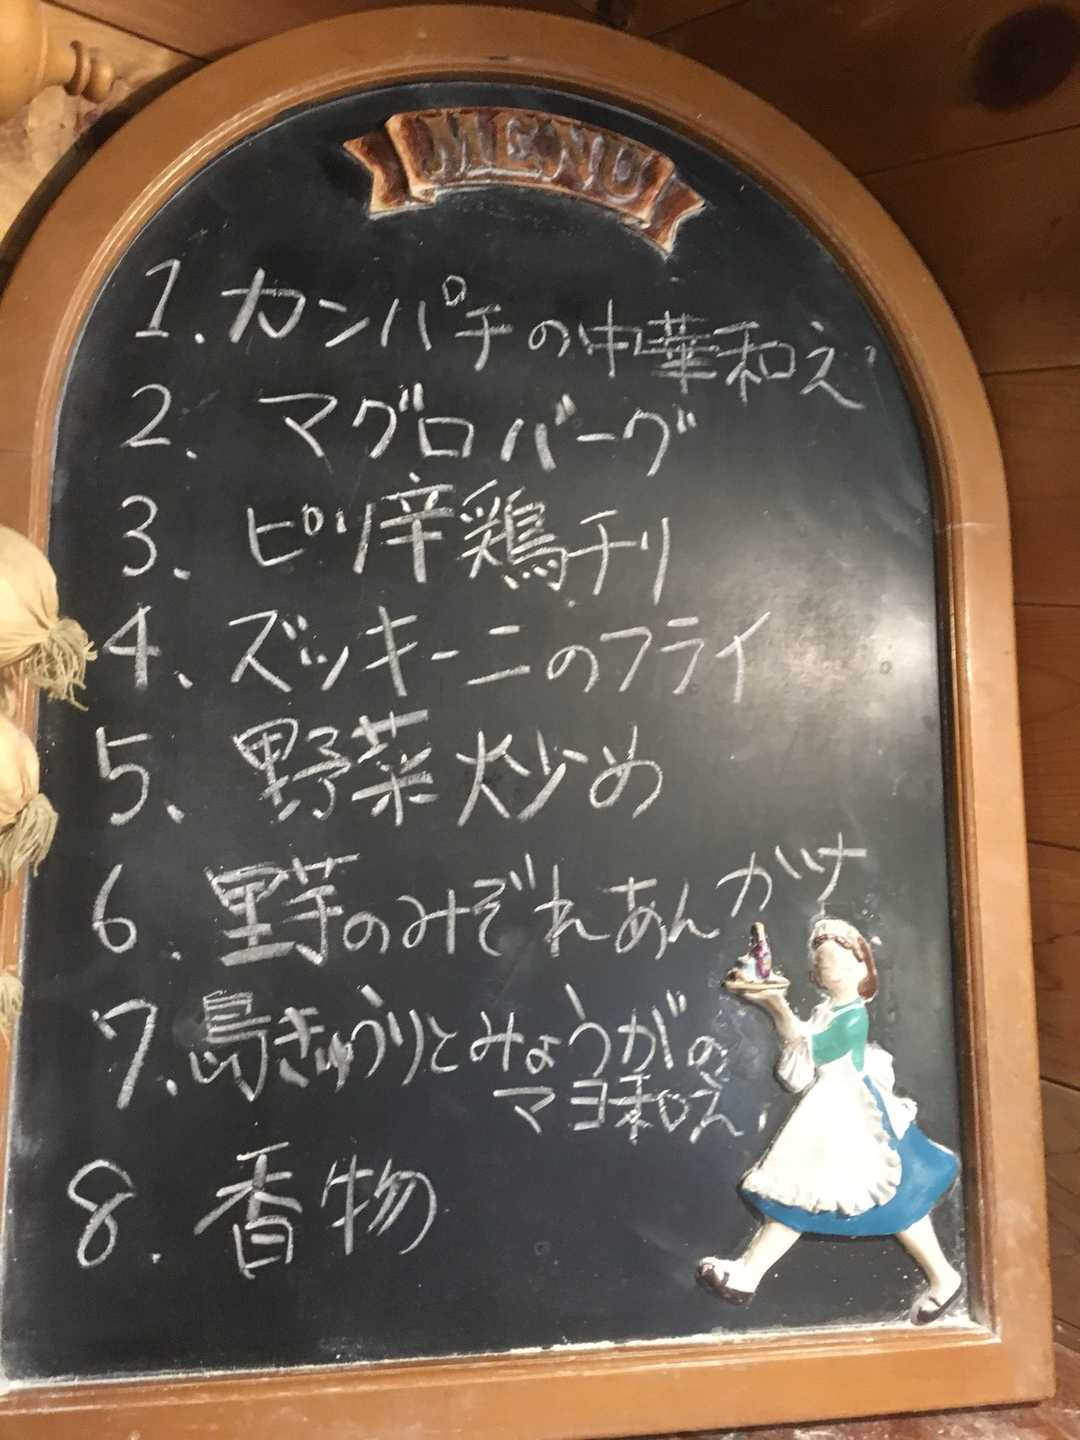 MENU
1. カンパチの中華和え
2. マグロバーグ
3. ピリ辛鶏チリ
4. ズッキーニのフライ
5. 野菜炒め
6. 里芋のみぞれあんかけ
7. 島きゅうりとみょうがの
マヨ和え
8. 香物